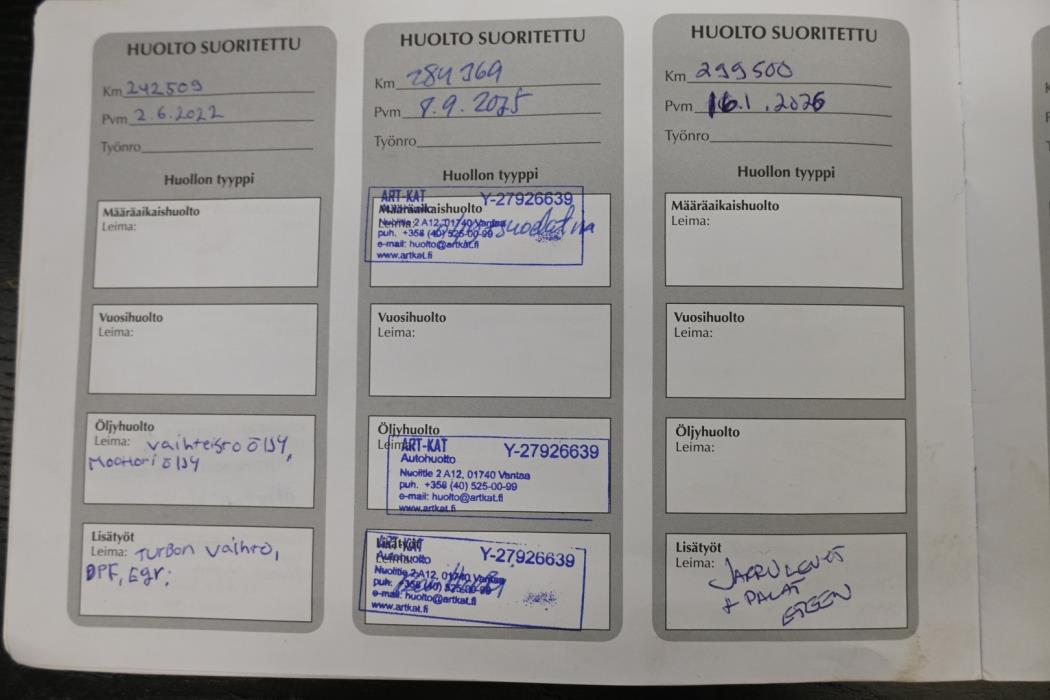 HUOLTO SUORITETTU
Km 242509
Pvm 2.6.2022
Työnro
Huollon tyyppi
Määräaikaishuolto
Leima:
Vuosihuolto
Leima:
Öljyhuolto
Leima: vaihteisto ÖlJY,
Moottori ÖlJY
Lisätyöt
Leima: Turbon vaihto,
DPF, Egr;
HUOLTO SUORITETTU
Km 284369
Pvm 8.9.2025
Työnro
Huollon tyyppi
ART-KAT Y-27926639
Määräaikaishuolto
Leima:
Nuolitie 2 A12, 01740 Vantaa
puh. +358 (40) 525-00-99
e-mail: huolto@artkat.fi
www.artkat.fi
Vuosihuolto
Leima:
Öljyhuolto
Leima:
ART-KAT Y-27926639
Autohuolto
Nuolitie 2 A12, 01740 Vantaa
puh. +358 (40) 525-00-99
e-mail: huolto@artkat.fi
www.artkat.fi
Lisätyöt
Leima:
ART-KAT Y-27926639
Autohuolto
Nuolitie 2 A12, 01740 Vantaa
puh. +358 (40) 525-00-99
e-mail: huolto@artkat.fi
www.artkat.fi
HUOLTO SUORITETTU
Km 299500
Pvm 16.1.2026
Työnro
Huollon tyyppi
Määräaikaishuolto
Leima:
Vuosihuolto
Leima:
Öljyhuolto
Leima:
Lisätyöt
Leima: JARRULEVYT
+ PALAT
ETEEN